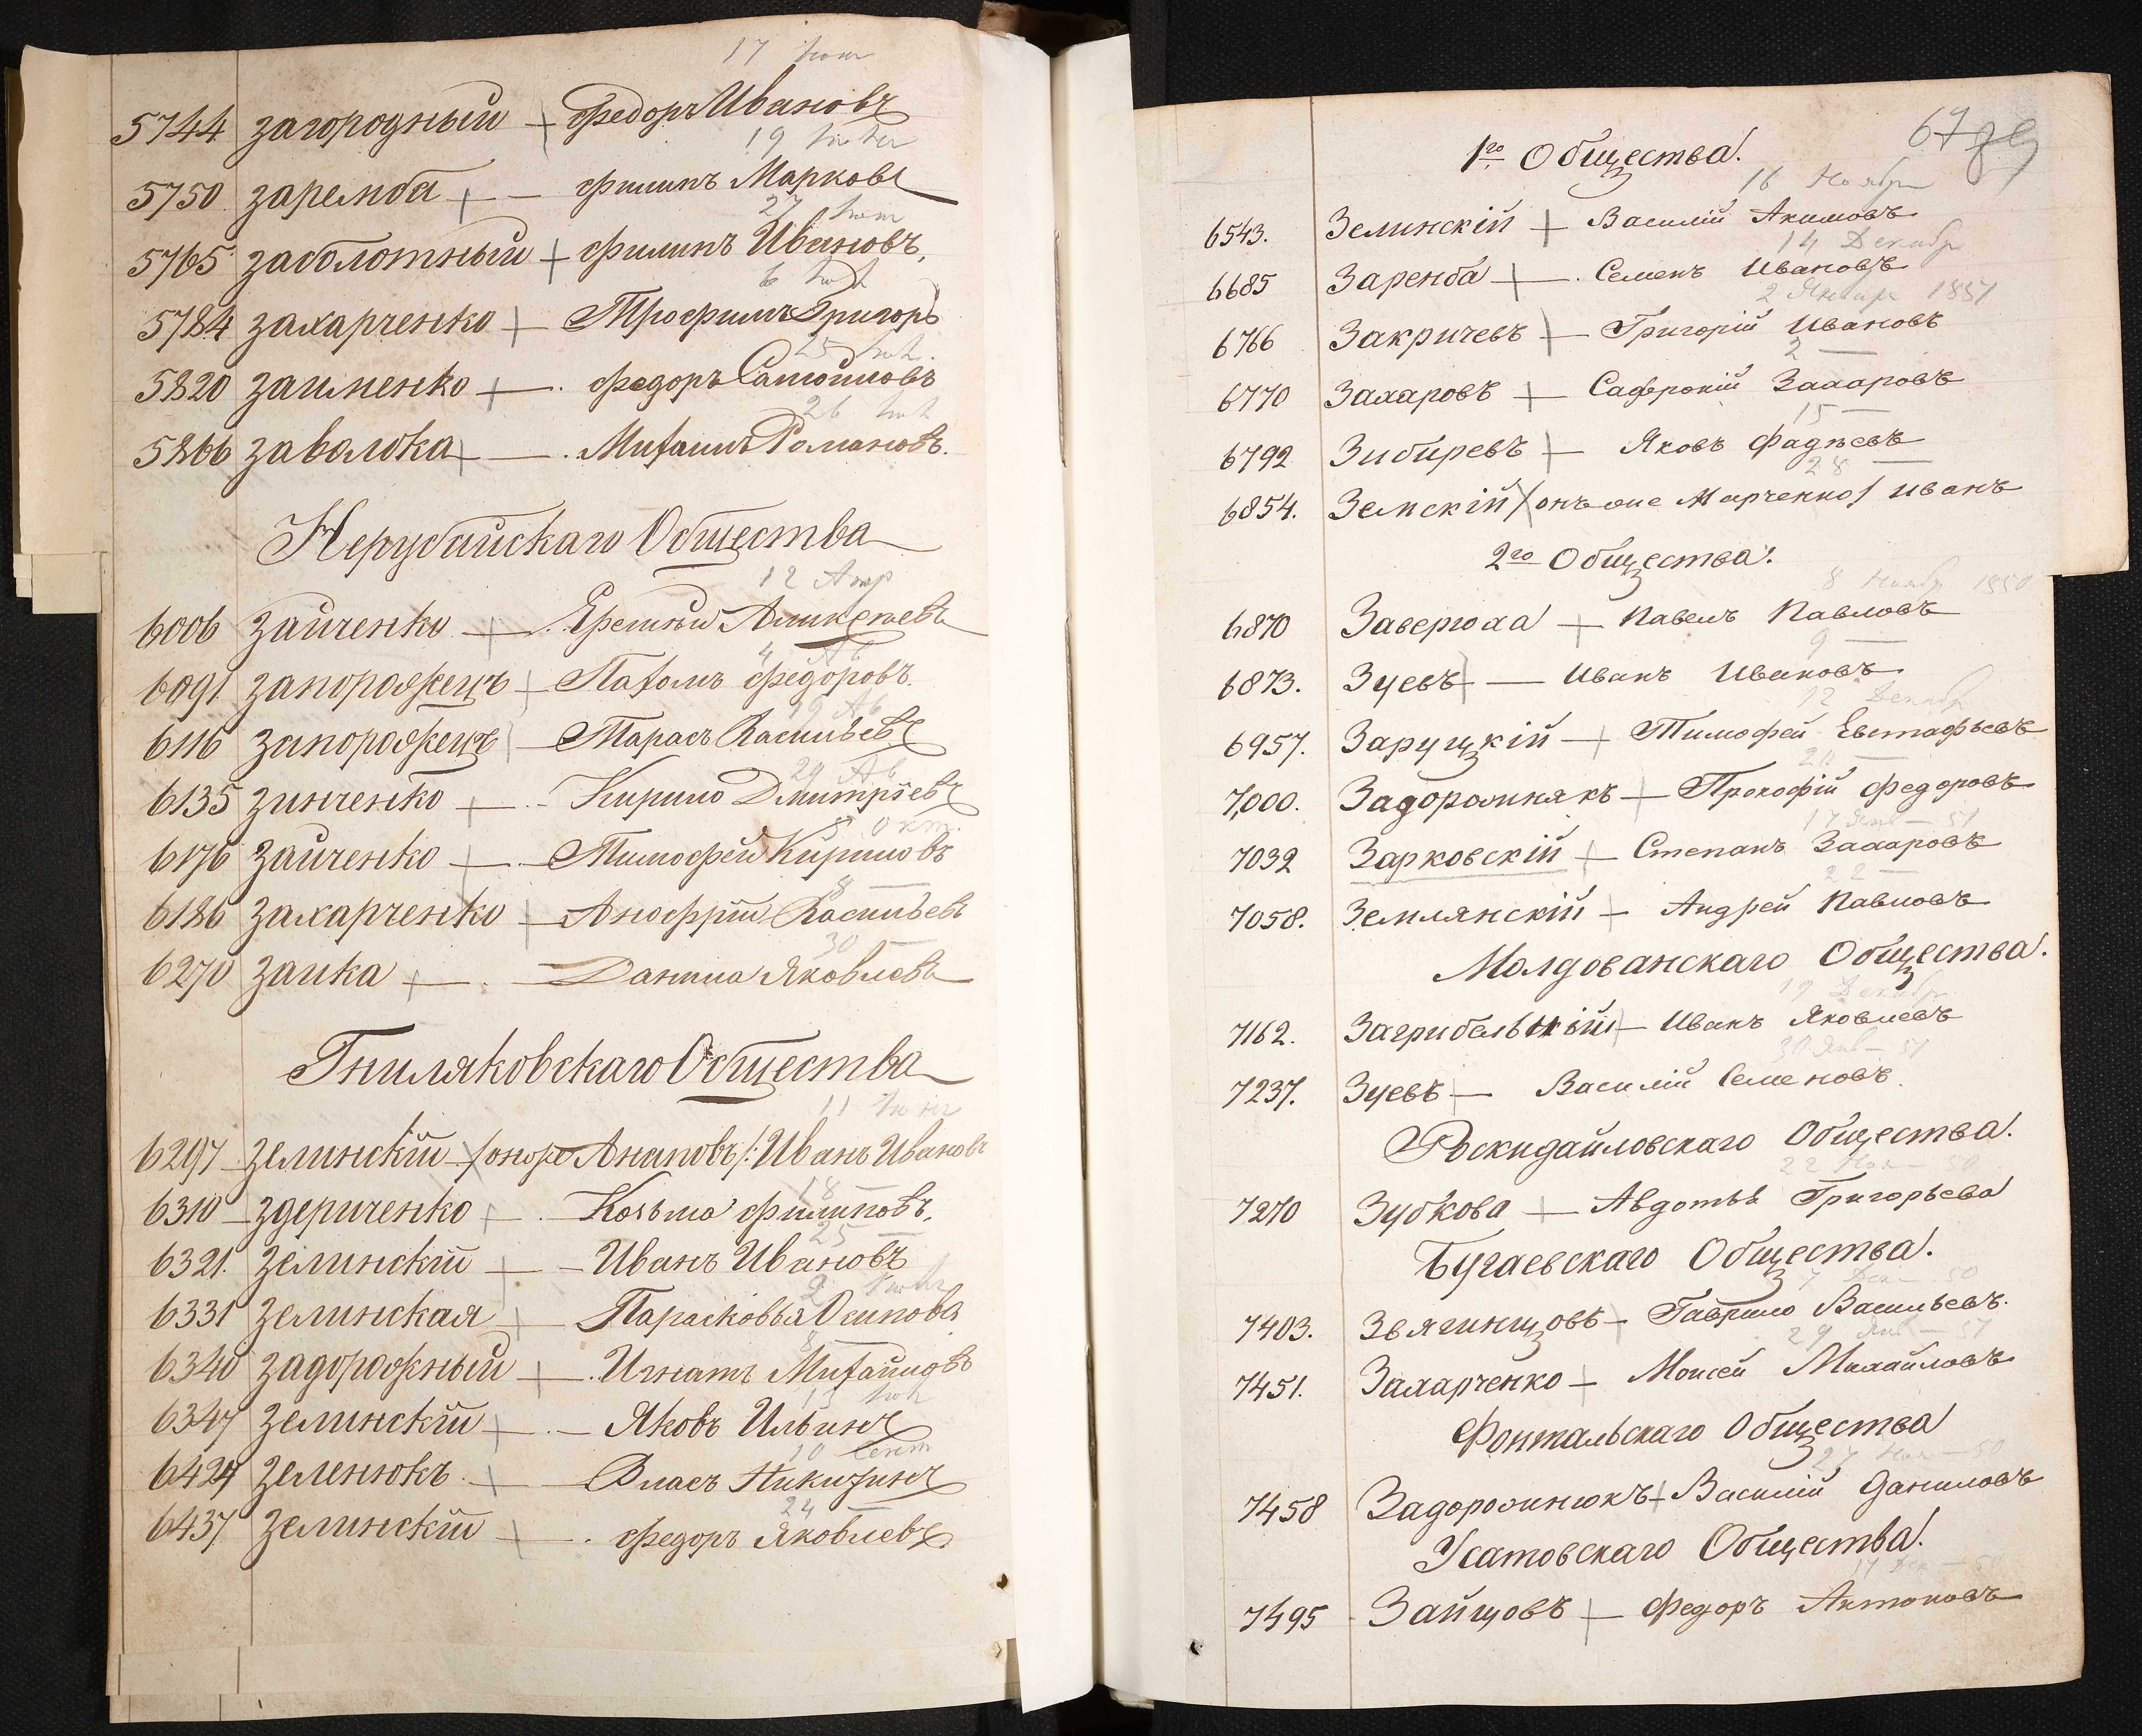 5744 Загородный — Федоръ Ивановъ
19
5750 Заремба — Филипъ Марковъ
27
5765 Заболотный — Филипъ Ивановъ,
6
5784 Захарченко — Трофимъ Григорь
25
5820 Заименко — Федоръ Самойловъ
26
5866 Заволока — Михаилъ Романовъ.
Нерубайскаго Общества
12 Апр
6006 Зайченко — Еремѣй Аликѣевъ
4 Ав
6091 Запорожецъ — Пахомъ Федоровъ.
19 Ав
6116 Запорожецъ — Тарасъ Васильевъ
29 Ав
6135 Зинченко — Кирило Дмитріевъ
5 Окт.
6176 Зайченко — Тимофей Кириловъ
8 —
6186 Захарченко — Анофрій Васильевъ
30
6270 Заика — Данила Яковлевъ
Гниляковскаго Общества
11
6297 Зелинскій /онъ же Анаповъ/: Иванъ Ивановъ
18
6310 Здериченко — Козьма Филиповъ,
25
6321. Зелинскій — Иванъ Ивановъ
2
6331 Зелинская — Парасковья Осипова
8
6340 Задорожный — Игнатъ Михайловъ
13
6347 Зелинскій — Яковъ Ильинъ
10 Сент
6424 Зеленюкъ — Власъ Никитинъ
24
6437 Зелинскій — Федоръ Яковлевъ
67
1го Общества.
16 Ноябр
6543. Зелинскій — Василій Акимовъ
14 Декабр
6685 Заренба — Семенъ Ивановъ
2 Январ 1851
6766 Закричевъ — Григорій Ивановъ
2 —
6770 Захаровъ — Сафроній Захаровъ
15 —
6792 Зибиревъ — Яковъ Фадѣевъ
28 —
6854. Земскій /онъ же Марченко/ Иванъ
2го Общества.
8 Ноябр 1850
6870 Заверюха — Павелъ Павловъ
9 —
6873. Зуевъ — Иванъ Ивановъ
12 Декабр
6957. Заруцкій — Тимофей Евстафьевъ
7,000. Задорожнякъ — Прокофій Федоровъ
17 Янв — 51
7032 Зарковскій — Степанъ Захаровъ
22 —
7058. Землянскій — Андрей Павловъ
Молдованскаго Общества.
19 Декабр
7162. Загрибельный — Иванъ Яковлевъ
30 Янв — 51
7237. Зуевъ — Василій Семеновъ
Роскидайловскаго Общества.
22 Ноя — 50
7270 Зубкова — Авдотья Григорьева
Бугаевскаго Общества.
7 Дек — 50
7403. Звягинцовъ — Гаврило Васильевъ.
29 Янв — 51
7451. Захарченко — Моисей Михайловъ
Фонтальскаго Общества
27 Ноя — 50
7458 Задорожнюкъ — Василій Даниловъ
Усатовскаго Общества.
17 Дек — 50
7495 Зайцовъ — Федоръ Антоновъ